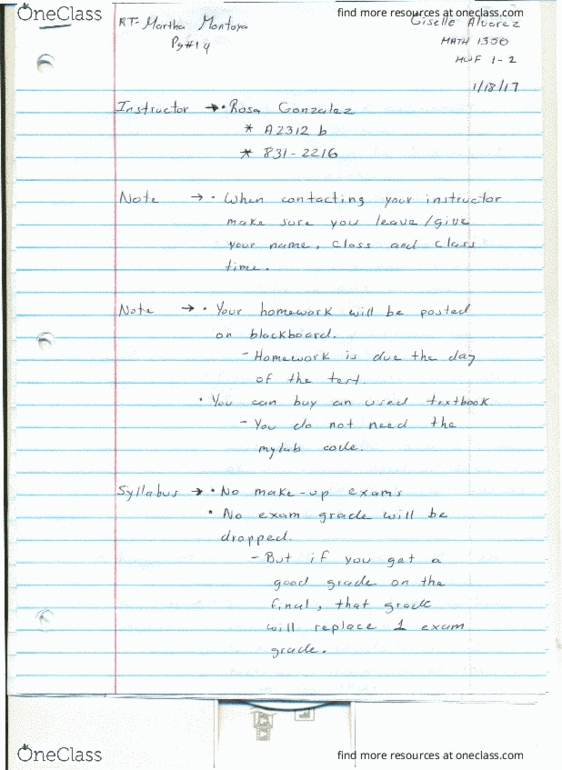 OneClass
find more resources at oneclass.com
RT: Martha Montoya
Giselle Alvarez
Pg# 14
MATH 1350
MWF 1-2
1/18/17
Instructor → • Rosa Gonzalez
* A2312 b
* 831-2216
Note → • When contacting your instructor
make sure you leave/give
your name, class and class
time.
Note → • Your homework will be posted
on blackboard.
- Homework is due the day
of the test.
• You can buy an used textbook
- You do not need the
mylab code.
Syllabus → • No make-up exams
• No exam grade will be
dropped.
- But if you get a
good grade on the
final, that grade
will replace 1 exam
grade.
OneClass
find more resources at oneclass.com